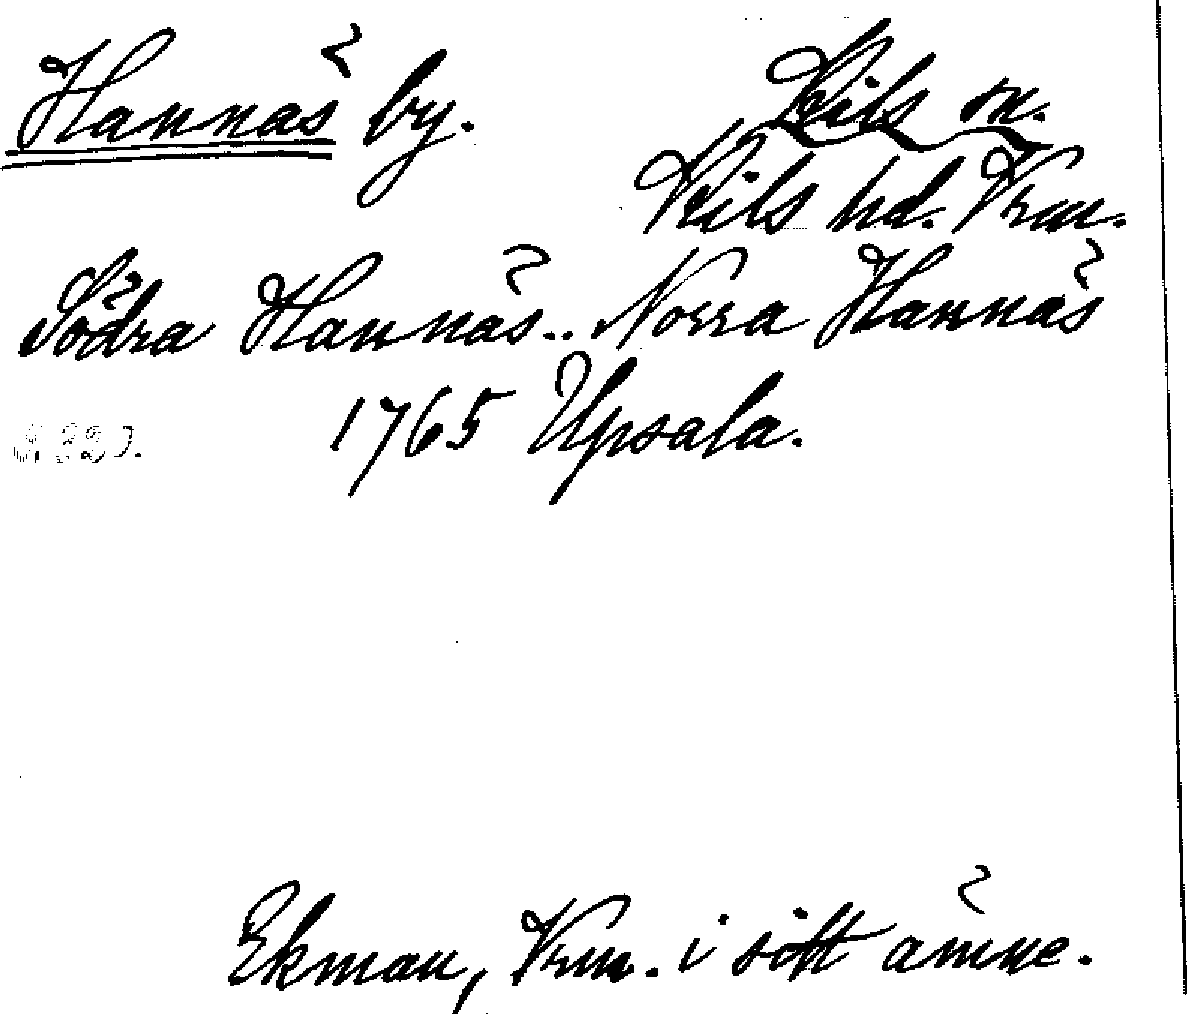 Hannäs by. Kils sn.
Kils hd. Vrm.
Södra Hannäs.. Norra Hannäs
1765 Upsala.
Ekman, Vrm. i sitt ämne.